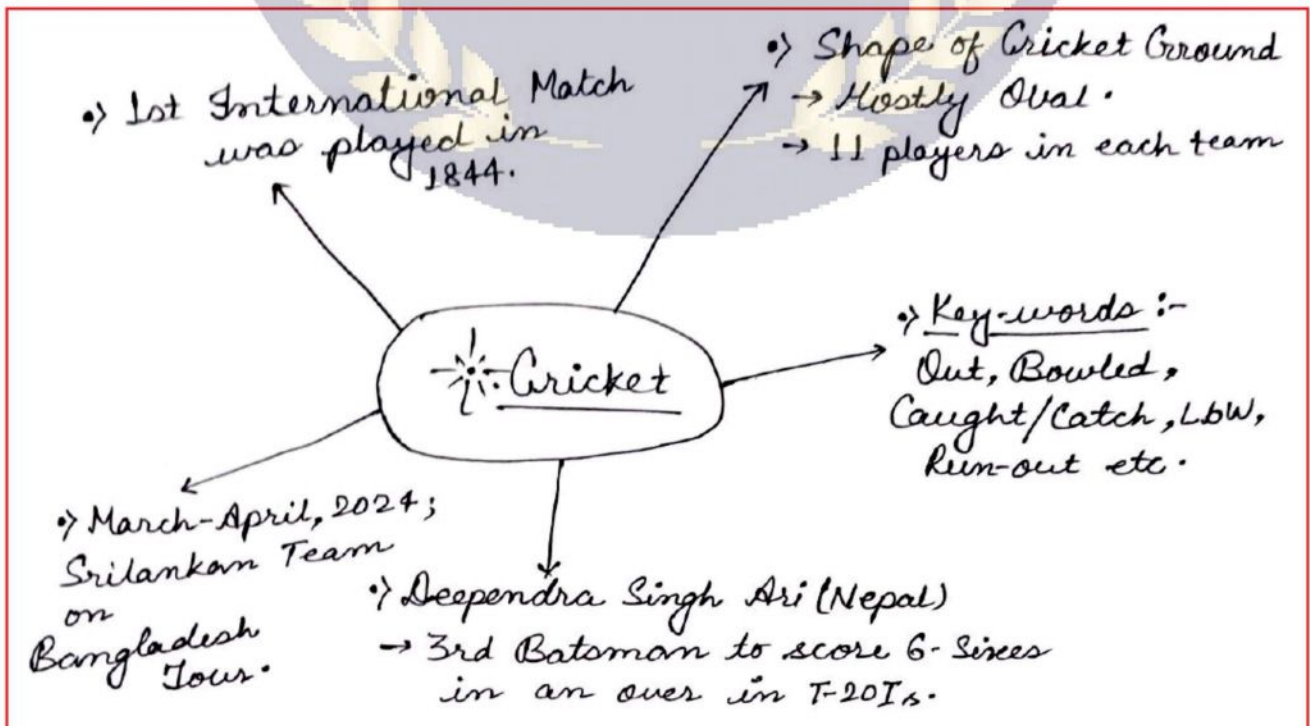 •) 1st International Match
was played in
1844.
•) Shape of Cricket Ground
→ Mostly Oval.
→ 11 players in each team
Cricket
•) Key-words :-
Out, Bowled,
Caught/Catch, LbW,
Run-out etc.
•) March-April, 2024;
Srilankan Team
on
Bangladesh
Tour.
•) Deependra Singh Ari (Nepal)
→ 3rd Batsman to score 6-Sixes
in an over in T-20Is.